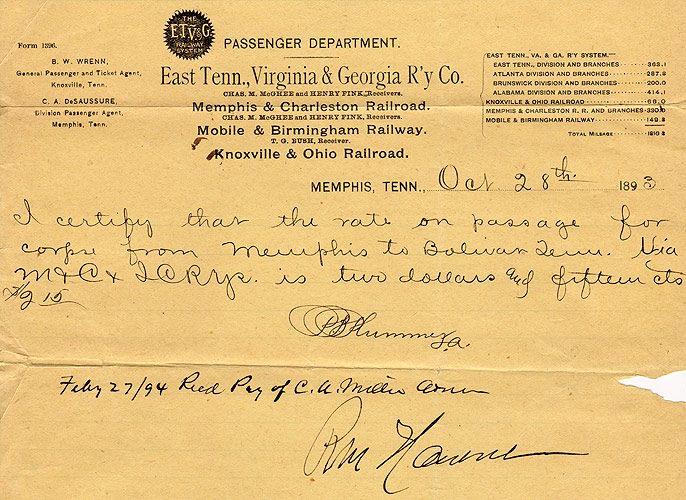 THE
E.T.V.&G
RAILWAY
SYSTEM
Form 1396.
PASSENGER DEPARTMENT.
B. W. WRENN,
General Passenger and Ticket Agent,
Knoxville, Tenn.
C. A. DeSAUSSURE,
Division Passenger Agent,
Memphis, Tenn.
East Tenn., Virginia & Georgia R'y Co.
CHAS. M. McGHEE and HENRY FINK, Receivers.
Memphis & Charleston Railroad.
CHAS. M. McGHEE and HENRY FINK, Receivers.
Mobile & Birmingham Railway.
T. G. BUSH, Receiver.
Knoxville & Ohio Railroad.
EAST TENN., VA. & GA. R'Y SYSTEM
EAST TENN., DIVISION AND BRANCHES 363.1
ATLANTA DIVISION AND BRANCHES 287.8
BRUNSWICK DIVISION AND BRANCHES 200.0
ALABAMA DIVISION AND BRANCHES 414.1
KNOXVILLE & OHIO RAILROAD 66.0
MEMPHIS & CHARLESTON R. R. AND BRANCHES 330.
MOBILE & BIRMINGHAM RAILWAY 149.3
TOTAL MILEAGE 1810.3
MEMPHIS, TENN., Oct. 28th. 1893
I certify that the rate on passage for
corpse from Memphis to Bolivar Tenn. Via
M & C & I C Rys. is two dollars and fifteen cts
$2 15
Feby 27/94 Recd Pay of C. A. Miller